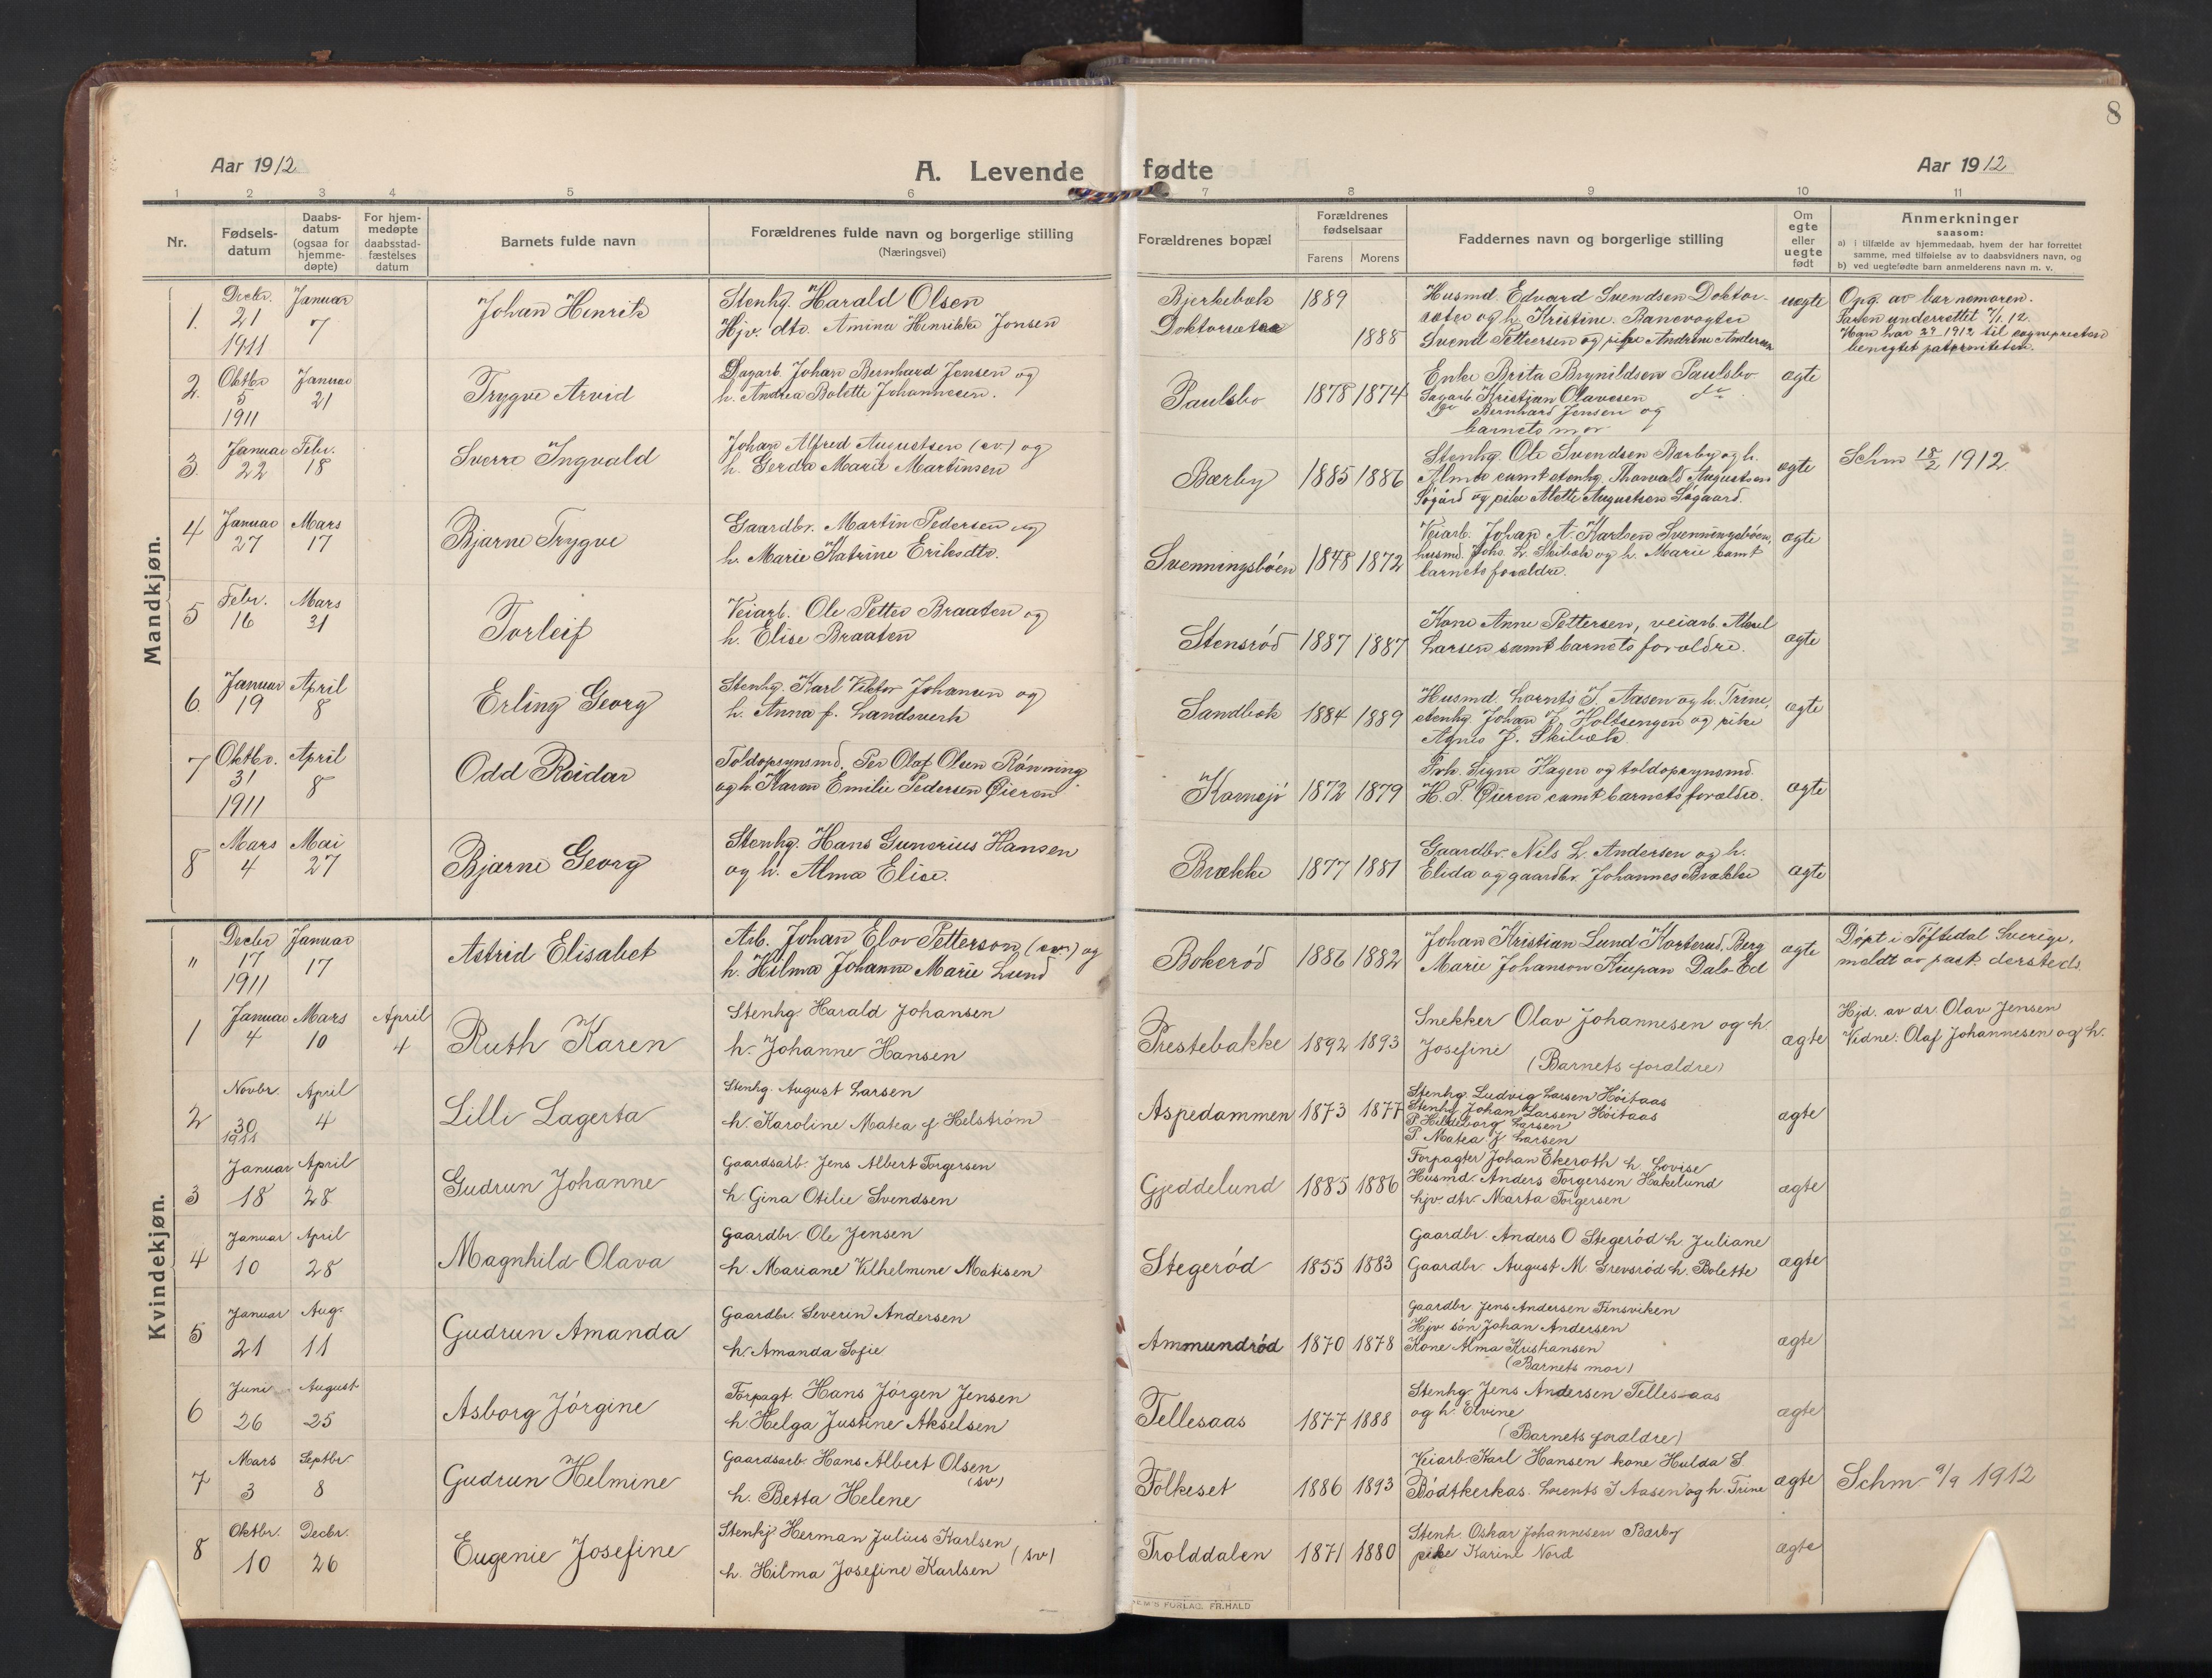 8
Aar 1912
A. Levende fødte
Aar 1912
1 2 3 4 5 6 7 8 9 10 11
Nr.
Fødsels-
datum
Daabs-
datum
(ogsaa for
hjemme-
døpte)
For hjem-
medøpte
daabsstad-
fæstelses
datum
Barnets fulde navn
Forældrenes fulde navn og borgerlige stilling
(Næringsvei)
Forældrenes bopæl
Forældrenes
fødselsaar
Farens Morens
Faddernes navn og borgerlige stilling
Om
egte
eller
uegte
født
Anmerkninger
saasom:
a) i tilfælde av hjemmedaab, hvem der har forrettet
samme, med tilføielse av to daabsvidners navn, og
b) ved uegtefødte barn anmelderens navn m. v.
Mandkjøn.
1.
Decbr.
21
1911
Januar
7
Johan Henrik
Stenhg. Harald Olsen
Hjv. dtr. Amina Henrikke Jensen
Bjerkebæk
Doktorsæter
1889
1888
Husmd. Edvard Svendsen Doktor-
sæter og h. Kristine. Banevogter
Svend Pettersen og pike Andrine Andersen
uegte
Opg. av barnemoren.
Faren underrettet 7/1. 12
Han har 29 1912 til sognepresten
benegtet paterniteten.
2.
Oktbr
5
1911
Januar
21
Trygve Arvid
Dagarb. Johan Bernhard Jensen og
h. Andrea Bolette Johannesen.
Paulsbo
1878 1874
Enke Brita Brynildsen Paulsbo
Dagarb. Kristian Olavesen
Bernhard Jensen og
barnets mor
ægte
3.
Januar
22
Febr.
18
Sverre Ingvald
Johan Alfred Augustsen (sv.) og
h. Gerda Marie Martinsen
Bærby
1885 1886
Stenhg. Ole Svendsen Bærby og h.
Alma samt stenhg. Thorvald Augustsen
Søgård og pike Alette Augustsen Søgaard.
ægte
Schm 18/2 1912
4
Januar
27
Mars
17
Bjarne Trygve
Gaardbr. Martin Pedersen og
h. Marie Katrine Eriksdtr.
Svenningsbøen
1848 1872
Veiarb. Johan A. Karlsen Svenningsbøen,
husmd. Johs. L. Skibæk og h. Marie samt
barnets forældre.
ægte
5
Febr.
16
Mars
31
Torleif
Veiarb. Ole Petter Braaten og
h. Elise Braaten
Stensrød
1887 1887
Kone Anne Pettersen, veiarb. Aksel
Larsen samt barnets forældre.
ægte
6.
Januar
19
April
8
Erling Georg
Stenhg. Karl Viktor Johansen og
h. Anna f. Landsverk
Sandbæk
1884 1889
Husmd. Lorents J. Aasen og h. Trine,
stenhg. Johan J. Holtsengen og pike
Agnes J. Skibæk.
ægte
7
Oktbr.
31
1911
April
8
Odd Reidar
Toldopsynsmd. Per Olaf Olsen Rønning
og h. Karen Emilie Pedersen Øieren
Kornsjø
1872 1879
Frk. Signe Hagen og toldopsynsmd.
H. P. Øieren samt barnets forældre.
ægte
8
Mars
4
Mai
27
Bjarne Georg
Stenhg. Hans Gunerius Hansen
og h. Alma Elise.
Brække
1877 1881
Gaardbr. Nils L. Andersen og h.
Elida og gaardbr. Johannes Brække
ægte
Kvindekjøn.
"
Decbr
17
1911
Januar
17
Astrid Elisabet
Arb. Johan Elov Petterson (sv.) og
h. Hilma Johanne Marie Lund
Bokerød
1886 1882
Johan Kristian Lund Korterud, Berg
Marie Johanson Dals-Ed
ægte
Døpt i Töftedal Sverige,
meldt av past. dersteds.
1
Januar
4
Mars
10
April
4
Ruth Karen
Stenhg. Harald Johansen
h. Johanne Hansen
Prestebakke
1892 1893
Snekker Olav Johannesen og h.
Josefine
(Barnets forældre)
ægte
Hjd. av dr. Olav Jensen
Vidne: Olaf Johannesen og h.
2
Novbr.
30
1911
April
4
Lilli Lagerta
Stenhg. August Larsen
h. Karoline Matea f. Helstrøm
Aspedammen
1873 1877
Stenhg. Ludvig Larsen Høitaas
Stenhg. Johan Larsen Høitaas
P. Hildeborg Larsen
P. Matea J Larsen
ægte
3
Januar
18
April
28
Gudrun Johanne
Gaardsarb. Jens Albert Torgersen
h. Gina Otilie Svendsen
Gjeddelund
1885 1886
Forpagter Johan Ekeroth h. Lovise
Husmd. Anders Torgersen Hakelund
hjv dtr. Marta Torgersen
ægte
4
Januar
10
April
28
Magnhild Olava
Gaardbr. Ole Jensen
h. Mariane Vilhelmine Matisen
Stegerød
1855 1883
Gaardbr. Anders O Stegerød h. Juliane
Gaardbr. August M. Grevsrød h. Bolette
ægte
5
Januar
21
Aug.
11
Gudrun Amanda
Gaardbr. Severin Andersen
h. Amanda Sofie
Ammundrød
1870 1878
Gaardbr Jens Andersen Tinsviken
Hjv. søn Johan Andersen
Kone Alma Kristiansen
(Barnets mor)
ægte
6
Juni
26
August
25
Asborg Jørgine
Forpagt. Hans Jørgen Jensen
h. Helga Justine Akselsen
Tellesaas
1877 1888
Stenhg Jens Andersen Tellesaas
og h. Elvine
(Barnets forældre)
ægte
7
Mars
3
Septbr
8
Gudrun Helmine
Gaardsarb. Hans Albert Olsen
(sv)
h. Betta Helene
Folkeset
1886 1893
Veiarb. Karl Hansen kone Hulda S
Bødtkerkas. Lorents J Aasen og h. Trine
ægte
Schm. 9/9 1912
8
Oktbr.
10
Decbr.
26
Eugenie Josefine
Stenhj Herman Julius Karlsen
(sv)
h. Hilma Josefine Karlsen
Trolddalen
1871 1880
Stenh. Oskar Johannesen Bærby
pike Karine Nord
ægte
FORLAG. FR.HALD